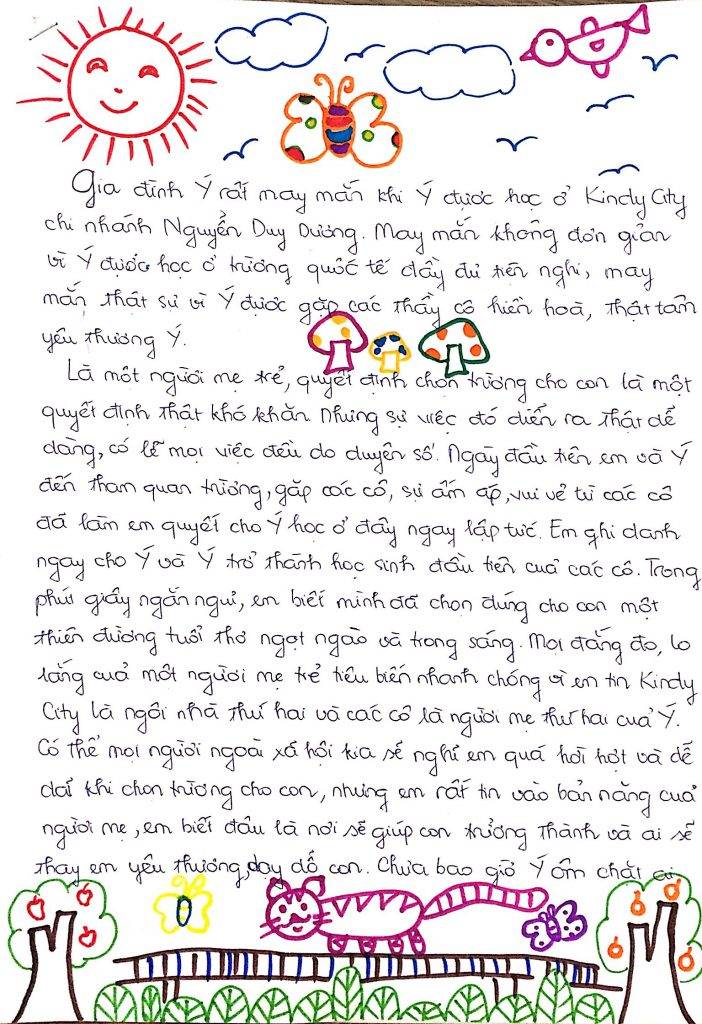 Gia đình Ý rất may mắn khi Ý được học ở Kindy City
chi nhánh Nguyễn Duy Dương. May mắn không đơn giản
vì Ý được học ở trường quốc tế đầy đủ tiện nghi, may
mắn thật sự vì Ý được gặp các thầy cô hiền hoà, thật tâm
yêu thương Ý.
Là một người mẹ trẻ, quyết định chọn trường cho con là một
quyết định thật khó khăn. Nhưng sự việc đó diễn ra thật dễ
dàng, có lẽ mọi việc đều do duyên số. Ngày đầu tiên em và Ý
đến tham quan trường, gặp các cô, sự ấm áp, vui vẻ từ các cô
đã làm em quyết cho Ý học ở đây ngay lập tức. Em ghi danh
ngay cho Ý và Ý trở thành học sinh đầu tiên của các cô. Trong
phút giây ngắn ngủi, em biết mình đã chọn đúng cho con một
thiên đường tuổi thơ ngọt ngào và trong sáng. Mọi đắng đo, lo
lắng của một người mẹ trẻ tiêu biến nhanh chóng vì em tin Kindy
City là ngôi nhà thứ hai và các cô là người mẹ thứ hai của Ý.
Có thể mọi người ngoài xã hội kia sẽ nghĩ em quá hời hợt và dễ
dãi khi chọn trường cho con, nhưng em rất tin vào bản năng của
người mẹ, em biết đâu là nơi sẽ giúp con trưởng thành và ai sẽ
thay em yêu thương, dạy dỗ con. Chưa bao giờ Ý ôm chặt ai